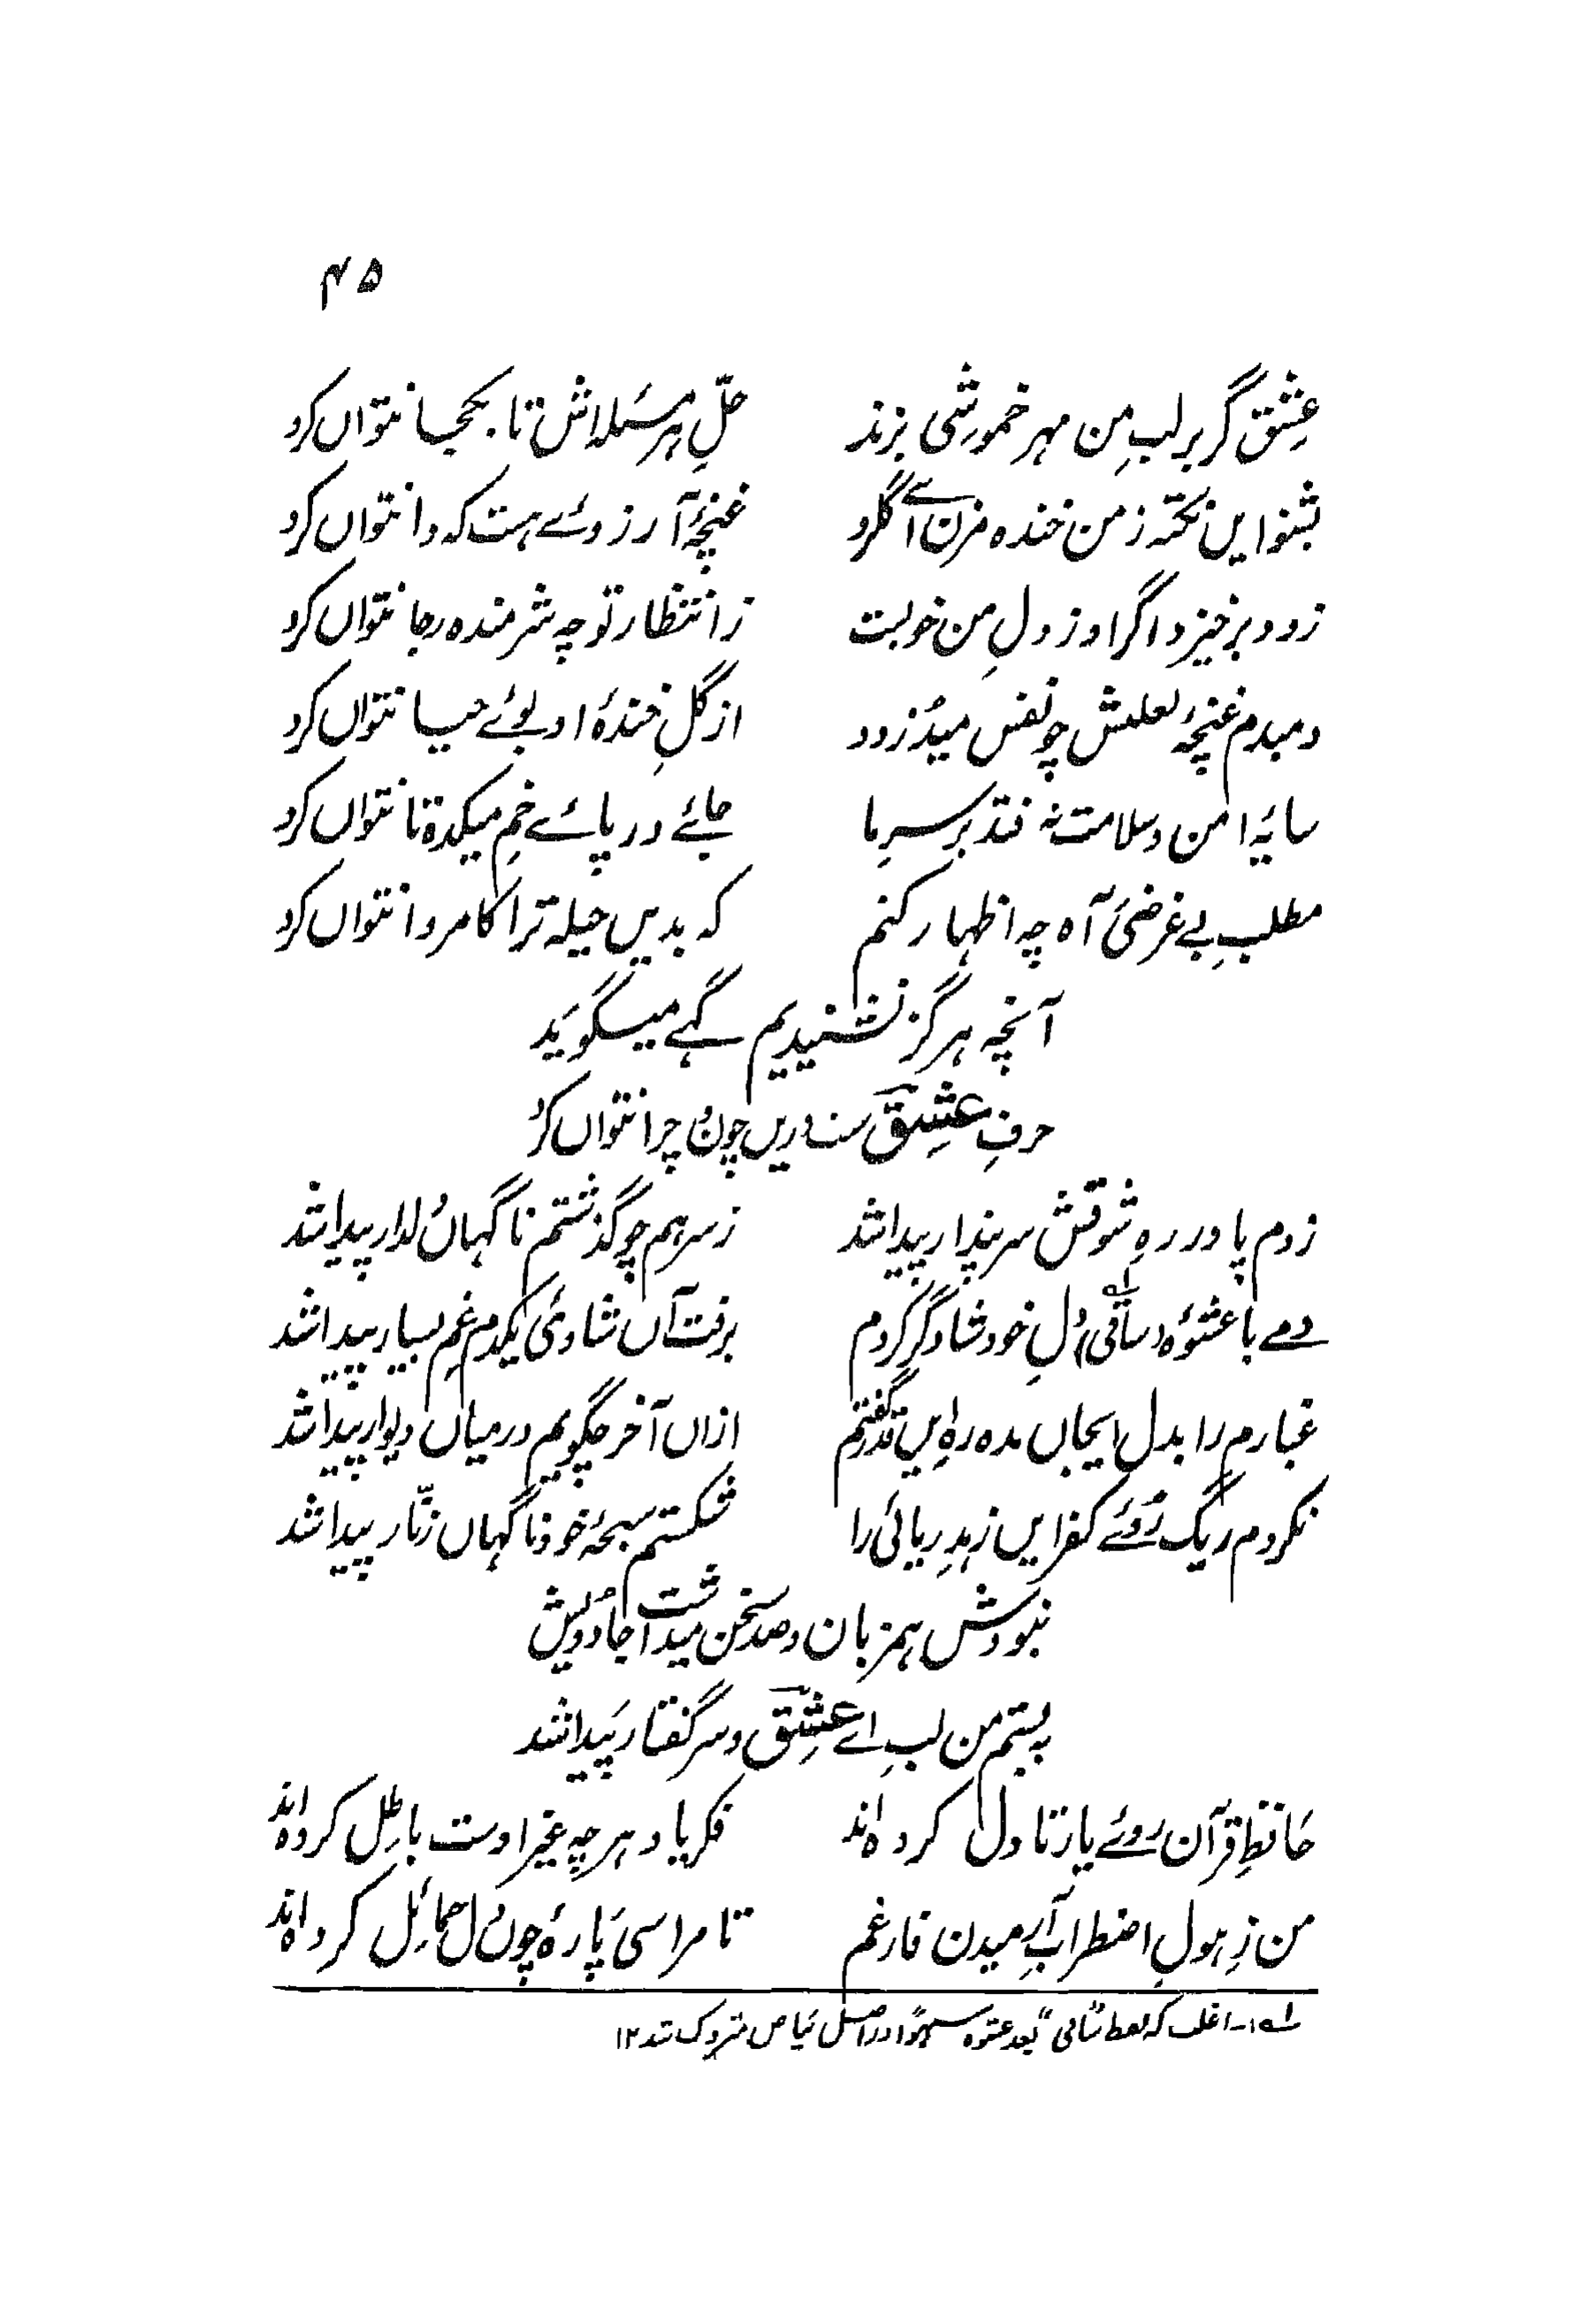 ۴۵
عِشق گر بر لبِ من مہر خموشی بزند حلِّ ہر مسئلہ اش تا بکجا نتواں کرد
بشنو ایں نکتہ ز من خندہ مزن اے گلرو غنچۂ آرزوئے ہست کہ وا نتواں کرد
زود برخیز و اگر او ز دلِ من خوبست ز انتظار تو چہ شرمندہ رجا نتواں کرد
دمبدم غنچۂ لعلش چو نفس میدزدد از گلِ خندۂ او بوئے حیا نتواں کرد
سایۂ امن و سلامت نہ فتد بر سرِ ما جائے در پائے خمِ میکدہ تا نتواں کرد
مطلبِ بے غرضیٔ آہ چہ اظہار کنم کہ بدیں حیلہ ترا کامروا نتواں کرد
آنچہ ہرگز نشنیدیم گہے میگوید
حرفِ عشِق ست دریں چون و چرا نتواں کرد
زدم پا در رہِ شوقش سر پندار پیدا شد ز سر ہم چو گذشتم ناگہاں دلدار پیدا شد
دمے با عشوۂ (ساقی)۱ دلِ خود شاد گر کردم برفت آں شادیٔ یکدم غمِ بسیار پیدا شد
غبارم را بدل ایجاں مدہ رہ ایں قدر گفتم ازاں آخر چگویم درمیاں دیوار پیدا شد
نکردم ریگ روئے کفر ایں زہدِ ریائی را شکستم سبحۂ خود ناگہاں زنّار پیدا شد
نبودش ہمزبان و صد سخن میداشت جادویش
بہ بستم من لبِ اے عشِق و سر گفتار پیدا شد
حافظِ قرآن روئے یار تا دل کردہ اند فکر یاد ہرچہ غیر اوست باطل کردہ اند
من زِ ہولِ اضطرابِ آرمیدن فارغم تا مرا سی پارۂ چوں دل حمائل کردہ اند
لہ ۱۔ اغلب کہ لفظ "ساقی" بعد عشوہ سہواً در اصل بیاض متروک شد ۱۲